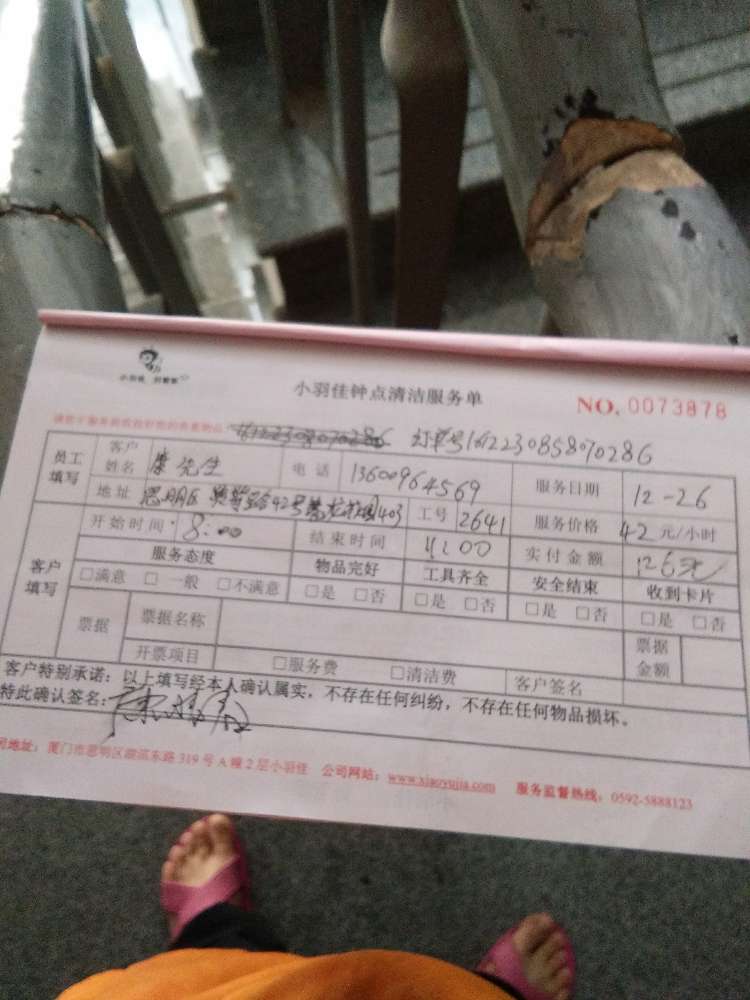 小羽佳 好管家
小羽佳钟点清洁服务单
NO. 0073878
订单号1612230858070286
员工填写 客户姓名 康先生 电话 13600964569 服务日期 12-26
地址 思明区 42号 403 工号 2641 服务价格 42元/小时
客户填写 开始时间: 8:00 结束时间 11:00 实付金额 126元
服务态度 物品完好 工具齐全 安全结束 收到卡片
□满意 □一般 □不满意 □是 □否 □是 □否 □是 □否 □是 □否
票据 票据名称 票据金额
开票项目 □服务费 □清洁费 客户签名
客户特别承诺:以上填写经本人确认属实,不存在任何纠纷,不存在任何物品损坏。
特此确认签名:
司地址:厦门市思明区 东路319号A幢2层小羽佳 公司网站:www.xiaoyujia.com 服务监督热线:0592-5888123